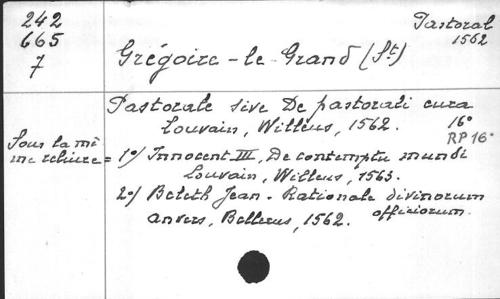 242
665
7
Pastoral
1562
Grégoire-le-Grand (St)
Pastorale sive De pastorali cura
Louvain, Willeus, 1562. 16°
RP16°
Sous la mê
me reliure = 1°/ Innocent III, De contemptu mundi
Louvain, Willeus, 1563.
2°/ Beleth Jean - Rationale divinorum
officiorum
Anvers, Bellerus, 1562.